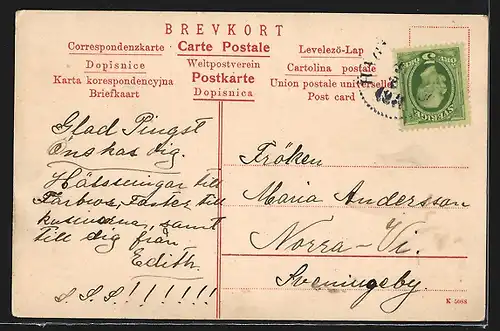 BREVKORT
Correspondenzkarte Carte Postale Levelező-Lap
Dopisnice Weltpostverein Cartolina postale
Karta korespondencyjna Postkarte Union postale universelle
Briefkaart Dopisnica Post card
Glad Pingst
Önskas dig.
Hälsningar till
Farbror, Faster, till
kusinerna, samt
till dig från
Edith
S.S.S!!!!!!!
Fröken
Maria Andersson
Norra-Vi.
Sveningeby.
SVERIGE
5
K 5088